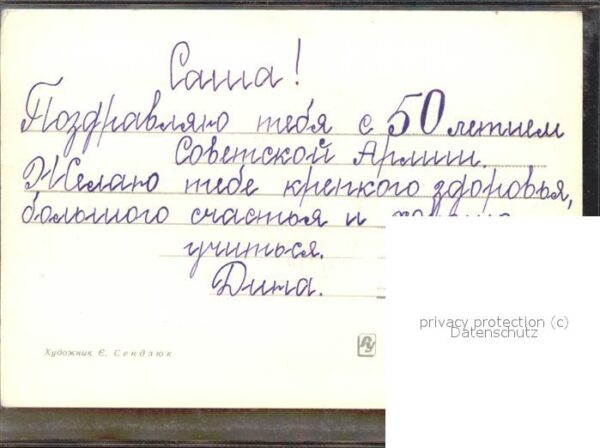 Саша!
Поздравляю тебя с 50 летием
Советской Армии.
Желаю тебе крепкого здоровья,
большого счастья и
учиться.
Дина.
Художник Є. Сендзюк
privacy protection (c)
Datenschutz